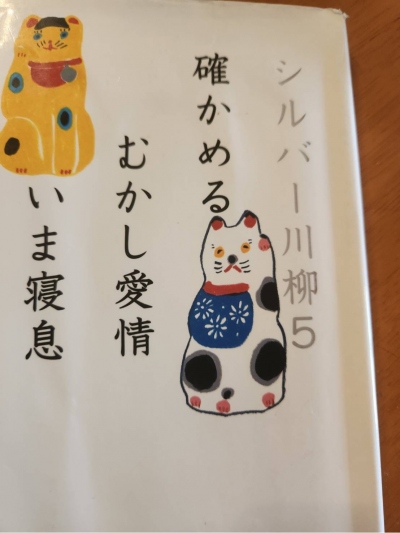 シルバー川柳5
確かめる
むかし愛情
いま寝息